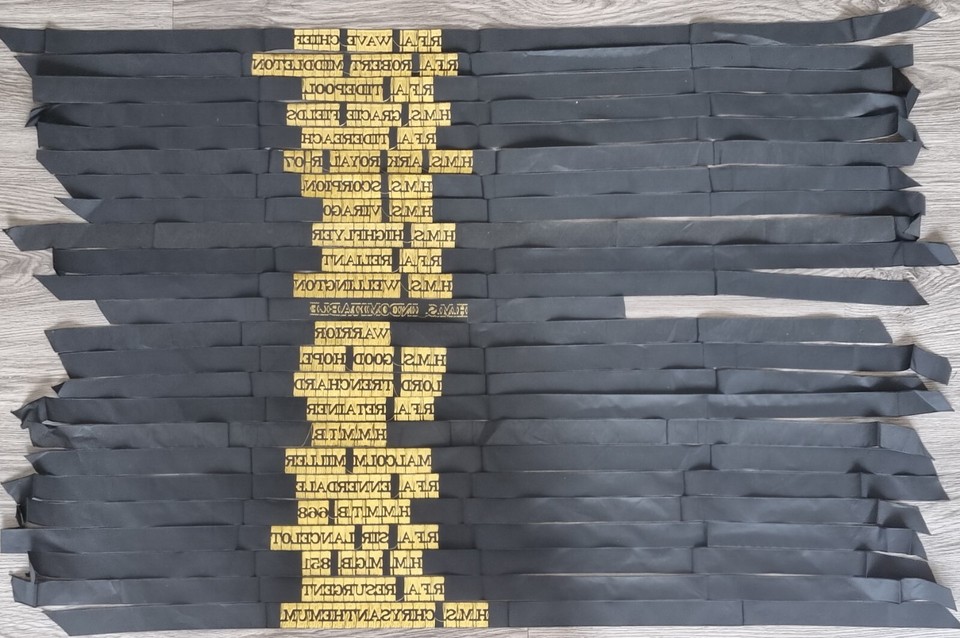 R.F.A. WAVE CHIEF
R.F.A. ROBERT MIDDLETON
R.F.A. TIDEPOOL
H.M.S. GRACIE FIELDS
R.F.A. TIDEREACH
H.M.S. ARK ROYAL R-07
H.M.S. SCORPION
H.M.S. VIRAGO
H.M.S. HIGHFLYER
R.F.A. RELIANT
H.M.S. WELLINGTON
H.M.S. INDOMITABLE
WARRIOR
H.M.S. GOOD HOPE
LORD TRENCHARD
R.F.A. RETAINER
H.M.M.T.B.
MALCOLM MILLER
R.F.A. ENNERDALE
H.M.M.T.B. 668
R.F.A. SIR LANCELOT
H.M. M.G.B. 851
R.F.A. RESURGENT
H.M.S. CHRYSANTHEMUM